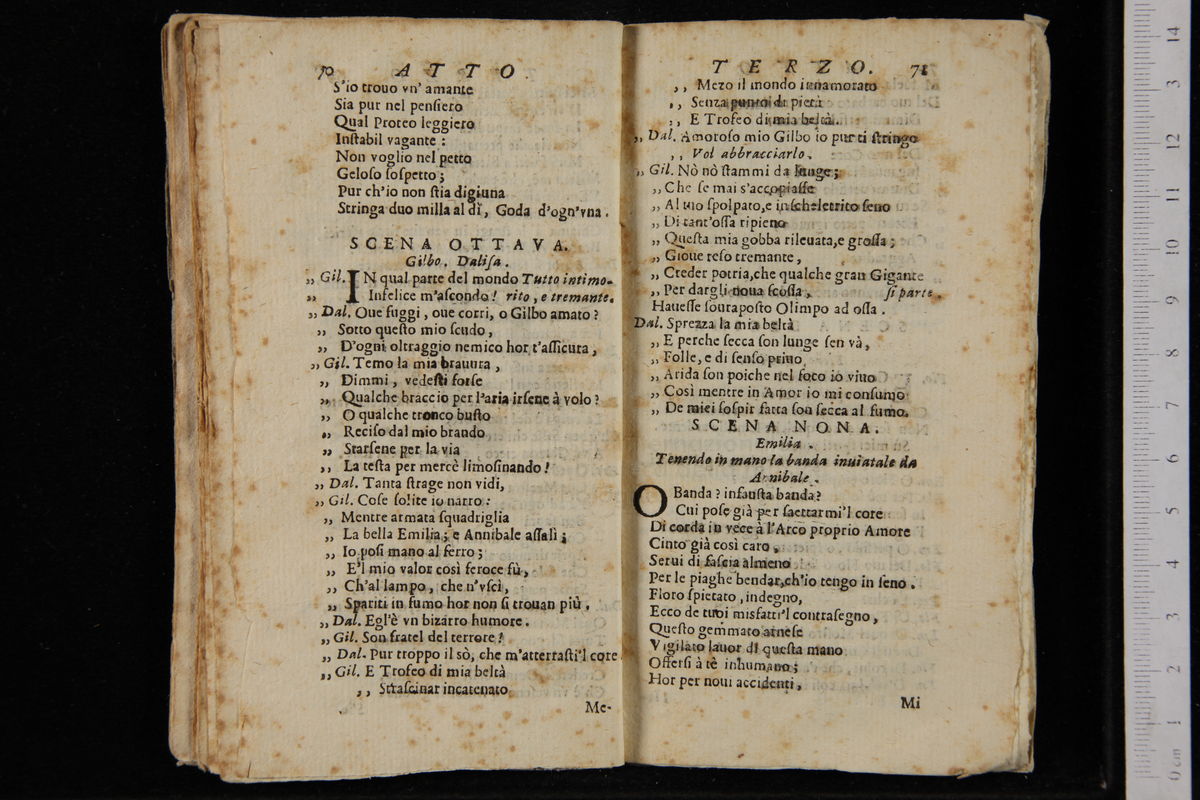 70 ATTO
S'io trouo vn' amante
Sia pur nel penſiero
Qual Proteo leggiero
Inſtabil vagante :
Non voglio nel petto
Geloſo ſoſpetto ;
Pur ch'io non ſtia digiuna
Stringa duo milla al dì, Goda d'ogn'vna .
SCENA OTTAVA.
Gilbo. Daliſa .
,, Gil. IN qual parte del mondo Tutto intimo-
,, Infelice m'aſcondo ! rito, e tremante.
,, Dal. Oue fuggi, oue corri, o Gilbo amato ?
,, Sotto queſto mio ſcudo,
,, D'ogni oltraggio nemico hor t'aſſicura ,
,, Gil. Temo la mia brauura ,
,, Dimmi , vedeſti forſe
,, Qualche braccio per l'aria irſene à volo ?
,, O qualche tronco buſto
,, Reciſo dal mio brando
,, Starſene per la via
,, La teſta per mercè limoſinando !
,, Dal. Tanta ſtrage non vidi,
,, Gil. Coſe ſolite io narro :
,, Mentre armata ſquadriglia
,, La bella Emilia ; e Annibale aſſalì ;
,, Io poſi mano al ferro ;
,, E'l mio valor così feroce fù ,
,, Ch'al lampo , che n'vſcì ,
,, Spariti in fumo hor non ſi trouan più .
,, Dal. Egl'è vn bizarro humore .
,, Gil. Son fratel del terrore !
,, Dal. Pur troppo il sò, che m'atterraſti'l core
,, Gil. E Trofeo di mia beltà
,, Straſcinar incatenato
Me-
TERZO. 71
,, Mezo il mondo innamorato
,, Senza punto di pietà
,, E Trofeo di mia beltà .
,, Dal. Amoroſo mio Gilbo io pur ti ſtringo
,, Vol abbracciarlo .
,, Gil. Nò nò ſtammi da lunge ;
,, Che ſe mai s'accopiaſſe
,, Al tuo ſpolpato, e inſcheletrito ſeno
,, Di tant'oſſa ripieno
,, Queſta mia gobba rileuata, e groſſa ;
,, Gioue reſo tremante ,
,, Creder potria, che qualche gran Gigante
,, Per dargli noua ſcoſſa , ſi parte .
Haueſſe ſourapoſto Olimpo ad oſſa .
Dal. Sprezza la mia beltà
,, E perche ſecca ſon lunge ſen và ,
,, Folle, e di ſenſo priuo
,, Arida ſon poiche nel foco io viuo
,, Così mentre in Amor io mi conſumo
,, De miei ſoſpir fatta ſon ſecca al fumo.
SCENA NONA.
Emilia .
Tenendo in mano la banda inuiatale da
Annibale .
O Banda ? infauſta banda ?
Cui poſe già per ſaettarmi'l core
Di corda in vece à l'Arco proprio Amore
Cinto già così caro ,
Serui di faſcia almeno
Per le piaghe bendar, ch'io tengo in ſeno .
Floro ſpietato , indegno,
Ecco de tuoi misfatti'l contraſegno ,
Queſto gemmato arneſe
Vigilato lauor di queſta mano
Offerſi à tè inhumano ;
Hor per noui accidenti ,
Mi